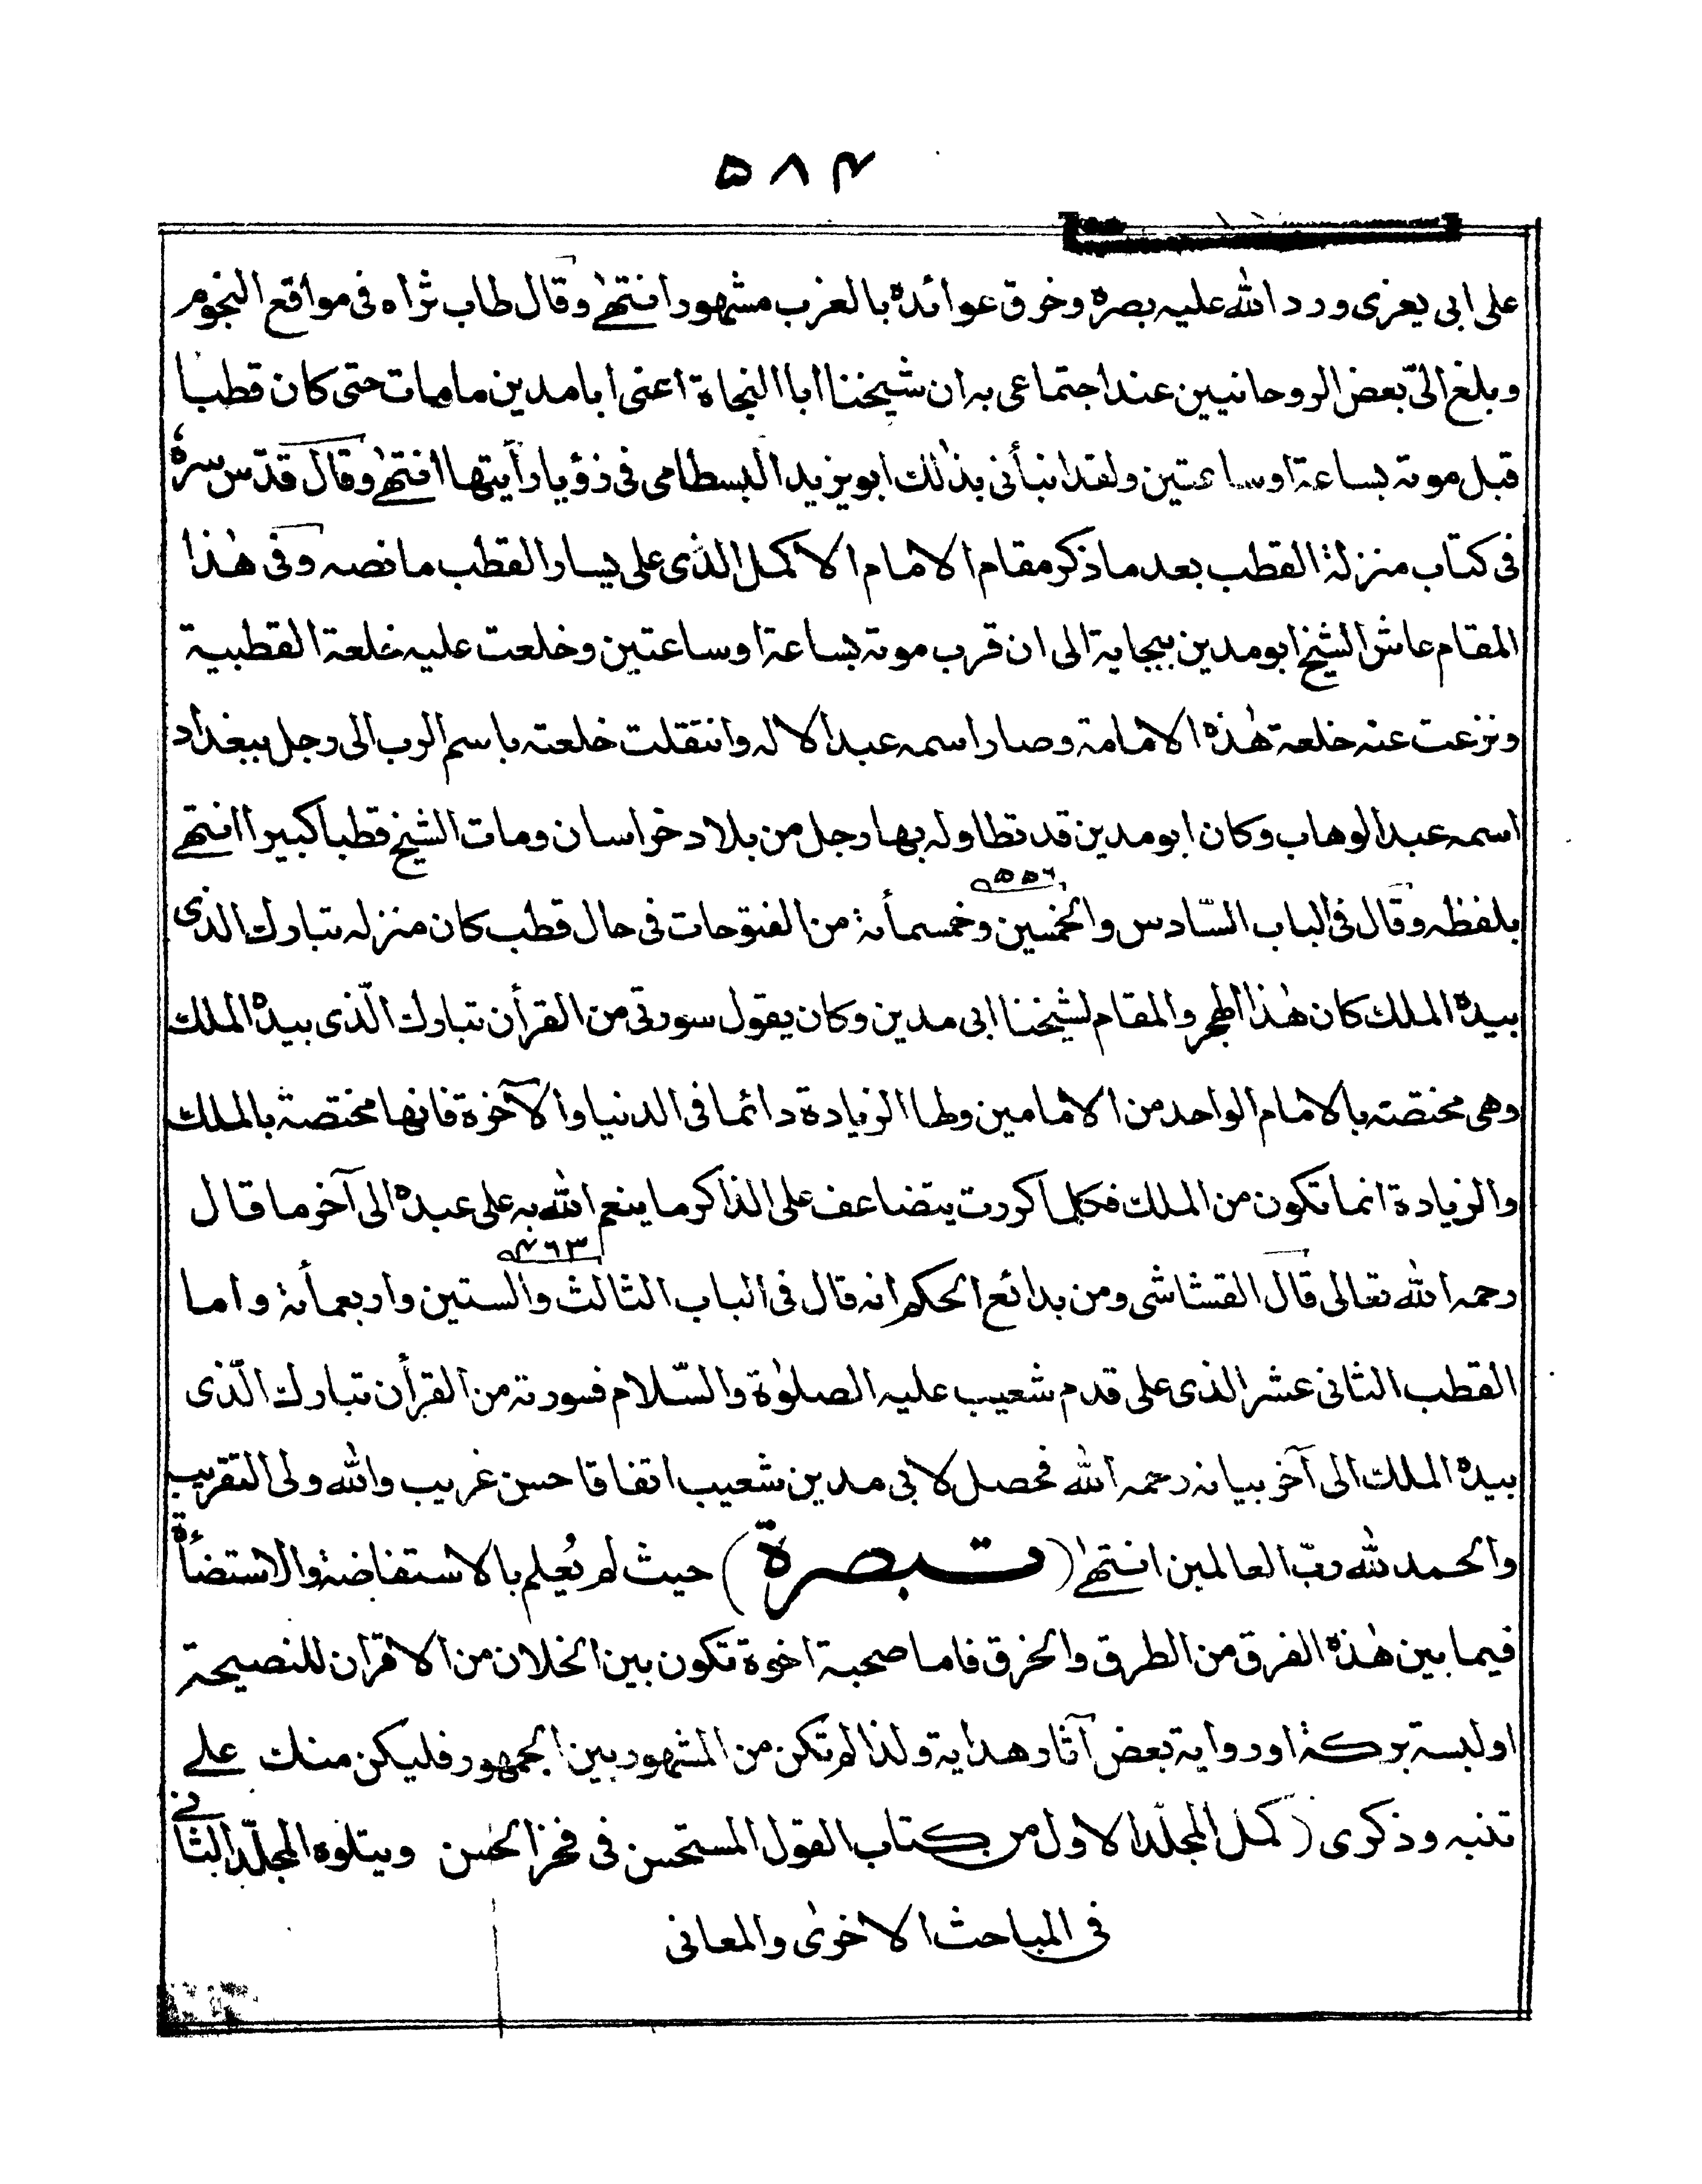 ۵۸۴
على ابى يعزى ورد الله عليه بصره وخرق عوائده بالغرب مشهور انتهىٰ وقال طاب ثراه فى مواقع النجوم
وبلغ الىّ بعض الروحانيين عند اجتماعى به ان شيخنا ابا النجاة اعنى ابا مدين ما مات حتى كان قطبا
قبل موته بساعة او ساعتين ولقد انبأنى بذٰلك ابو يزيد البسطامى فى رؤيا رأيتها انتهىٰ وقال قدّس سره
فى كتاب منزلة القطب بعد ما ذكر مقام الامام الاكمل الذى على يسار القطب ما نصه وفى هٰذا
المقام عاش الشيخ ابو مدين ببجاية الى ان قرب موته بساعة او ساعتين وخلعت عليه خلعة القطبية
ونزعت عنه خلعة هٰذه الامامة وصار اسمه عبد الاله وانتقلت خلعته باسم الرب الى رجل ببغداد
اسمه عبد الوهاب وكان ابو مدين قد تطاوله بها رجل من بلاد خراسان ومات الشيخ قطبا كبيرا انتهى
۵۵٦
بلفظه وقال فى الباب السّادس والخمسين وخمسمأئة من الفتوحات فى حال قطب كان منزله تبارك الذى
بيده الملك كان هٰذا الهجير والمقام لشيخنا ابى مدين وكان يقول سورتى من القرأن تبارك الّذى بيده الملك
وهى مختصة بالامام الواحد من الامامين ولها الزيادة دائما فى الدنيا والآخرة فانها مختصة بالملك
والزيادة انما تكون من الملك فكلما كررت يتضاعف على الذاكر ما ينعم الله به على عبده الى آخر ما قال
۴٦۳
رحمه الله تعالى قال القشاشى ومن بدائع الحكم انه قال فى الباب الثالث والستين واربعمأئة واما
القطب الثانى عشر الذى على قدم شعيب عليه الصلوٰة والسّلام فسورته من القرأن تبارك الّذى
بيده الملك الى آخر بيانه رحمه الله فحصل لابى مدين شعيب اتفاقا حسن غريب والله ولى التقريب
والحمد لله ربّ العالمين انتهىٰ (تبصرة) حيث لم يُعلم بالاستفاضة والاستضأة
فيما بين هٰذه الفرق من الطرق والخرق فاما صحبة اخوة تكون بين الخلان من الاقران للنصيحة
او لبسة بركة او رواية بعض آثار هداية ولذا لم تكن من المشهور بين الجمهور فليكن منك على
تنبه وذكرى (كمل المجلّد الاول من كتاب القول المستحسن فى فخر الحسن ويتلوه المجلّد الثانى
فى المباحث الاخرىٰ والمعانى